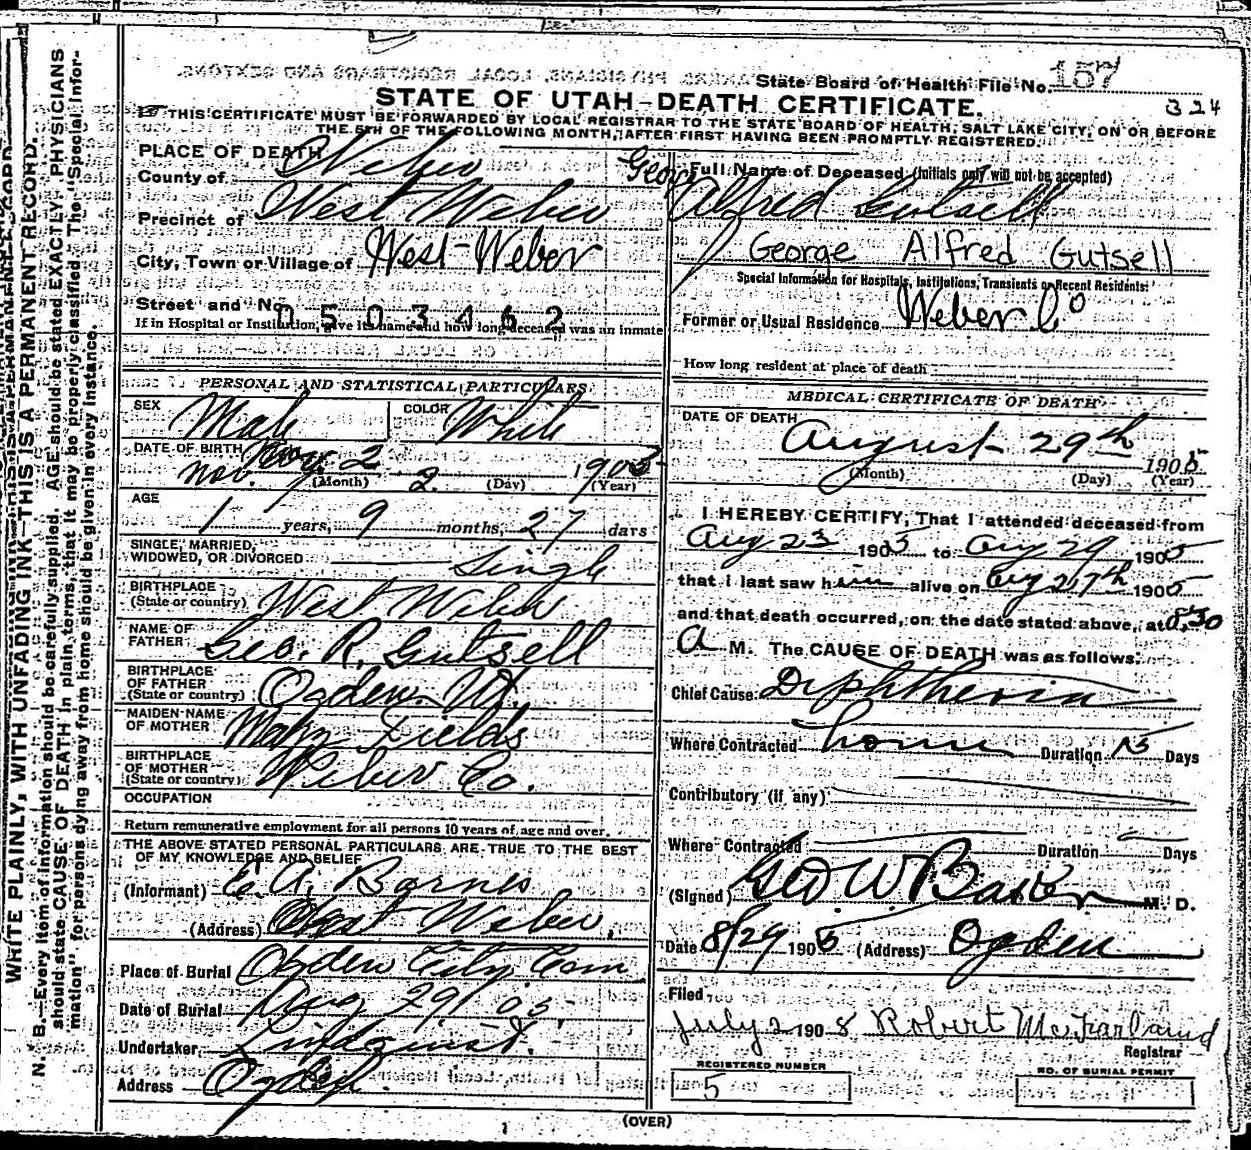 State Board of Health File No. 157
STATE OF UTAH—DEATH CERTIFICATE.
324
THIS CERTIFICATE MUST BE FORWARDED BY LOCAL REGISTRAR TO THE STATE BOARD OF HEALTH, SALT LAKE CITY, ON OR BEFORE
THE 5TH OF THE FOLLOWING MONTH, AFTER FIRST HAVING BEEN PROMPTLY REGISTERED.
PLACE OF DEATH
County of Weber
Precinct of West Weber
City, Town or Village of West-Weber
Street and No.
0503462
If in Hospital or Institution, give its name and how long deceased was an inmate
PERSONAL AND STATISTICAL PARTICULARS
SEX Male COLOR White
DATE OF BIRTH Nov. 2 1903
Nov. 2
(Month) (Day) (Year)
AGE
1 years, 9 months, 27 days
SINGLE, MARRIED,
WIDOWED, OR DIVORCED Single
BIRTHPLACE
(State or country) West Weber
NAME OF
FATHER Geo. R. Gutsell
BIRTHPLACE
OF FATHER
(State or country) Ogden Ut.
MAIDEN NAME
OF MOTHER Mary Fields
BIRTHPLACE
OF MOTHER
(State or country) Weber Co.
OCCUPATION
Return remunerative employment for all persons 10 years of age and over.
THE ABOVE STATED PERSONAL PARTICULARS ARE TRUE TO THE BEST
OF MY KNOWLEDGE AND BELIEF
(Informant) E. A. Barnes
(Address) West Weber.
Place of Burial Ogden City Cem
Date of Burial Aug 29 / 05
Undertaker Lindquist.
Address Ogden.
Full Name of Deceased (Initials only will not be accepted)
George Alfred Gutsell
George Alfred Gutsell
Special Information for Hospitals, Institutions, Transients or Recent Residents:
Former or Usual Residence Weber Co
How long resident at place of death
MEDICAL CERTIFICATE OF DEATH
DATE OF DEATH
August 29th 1905
(Month) (Day) (Year)
I HEREBY CERTIFY, That I attended deceased from
Aug 23 1905 to Aug 29 1905
that I last saw him alive on Aug 27th 1905
and that death occurred, on the date stated above, at 8:30
A M. The CAUSE OF DEATH was as follows:
Chief Cause: Diphtheria
Where Contracted home Duration Days
Contributory (if any)
Where Contracted Duration Days
(Signed) Geo W Baker M. D.
Date 8/29 1905 (Address) Ogden
Filed
July 2 1908 Robert McFarland
Registrar
REGISTERED NUMBER
5
NO. OF BURIAL PERMIT
(OVER)
WRITE PLAINLY, WITH UNFADING INK—THIS IS A PERMANENT RECORD.
N. B.—Every item of information should be carefully supplied. AGE should be stated EXACTLY. PHYSICIANS
should state CAUSE OF DEATH in plain terms, that it may be properly classified. The "Special Infor-
mation" for persons dying away from home should be given in every instance.